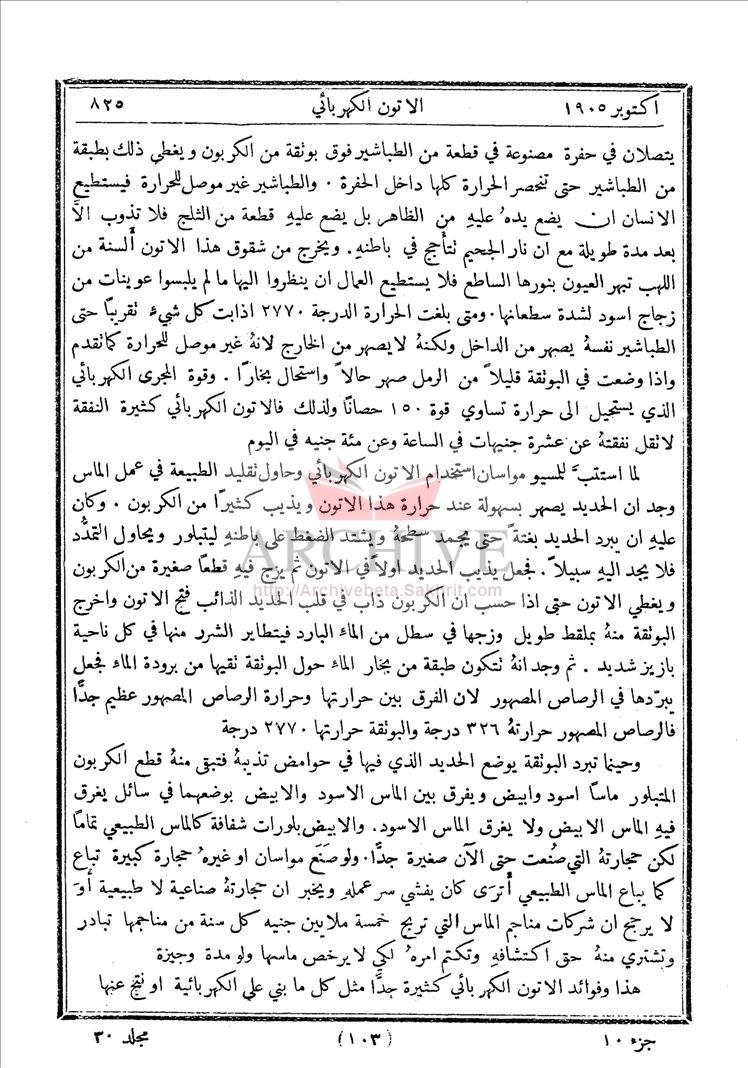 اكتوبر ١٩٠٥ الاتون الكهربائي ٨٢٥
يتصلان في حفرة مصنوعة في قطعة من الطباشير فوق بوثقة من الكربون ويغطي ذلك بطبقة
من الطباشير حتى تنحصر الحرارة كلها داخل الحفرة ٠ والطباشير غير موصل للحرارة فيستطيع
الانسان ان يضع يده ُ عليهِ من الظاهر بل يضع عليهِ قطعة من الثلج فلا تذوب الاَّ
بعد مدة طويلة مع ان نار الجحيم تتأجج في باطنهِ. ويخرج من شقوق هذا الاتون ألسنة من
اللهب تبهر العيون بنورها الساطع فلا يستطيع العمال ان ينظروا اليها ما لم يلبسوا عوينات من
زجاج اسود لشدة سطعانها. ومتى بلغت الحرارة الدرجة ٢٧٧٠ اذابت كل شيءٍ تقريبًا حتى
الطباشير نفسهُ يصهر من الداخل ولكنهُ لا يصهر من الخارج لانهُ غير موصل للحرارة كما تقدم
واذا وضعت في البوثقة قليلاً من الرمل صهر حالاً واستحال بخارًا . وقوة المجرى الكهربائي
الذي يستحيل الى حرارة تساوي قوة ١٥٠ حصانًا ولذلك فالاتون الكهربائي كثيرة النفقة
لا تقل نفقتهُ عن عشرة جنيهات في الساعة وعن مئة جنيه في اليوم
لما استتبَّ للمسيو مواسان استخدام الاتون الكهربائي وحاول تقليد الطبيعة في عمل الماس
وجد ان الحديد يصهر بسهولة عند حرارة هذا الاتون ويذيب كثيرًا من الكربون ٠ وكان
عليهِ ان يبرد الحديد بغتةً حتى يجمد سطحهُ ويشتد الضغط على باطنهِ ليتبلور ويحاول التمدُّد
فلا يجد اليهِ سبيلاً. فجعل يذيب الحديد اولاً في الاتون ثم يزج فيهِ قطعًا صغيرة من الكربون
ويغطي الاتون حتى اذا حسب ان الكربون ذاب في قلب الحديد الذائب فتح الاتون واخرج
البوثقة منهُ بملقط طويل وزجها في سطل من الماء البارد فيتطاير الشرر منها في كل ناحية
بازيز شديد . ثم وجد انهُ تتكون طبقة من بخار الماء حول البوثقة تقيها من برودة الماء فجعل
يبرّدها في الرصاص المصهور لان الفرق بين حرارتها وحرارة الرصاص المصهور عظيم جدًّا
فالرصاص المصهور حرارتهُ ٣٢٦ درجة والبوثقة حرارتها ٢٧٧٠ درجة
وحينما تبرد البوثقة يوضع الحديد الذي فيها في حوامض تذيبهُ فتبقى منهُ قطع الكربون
المتبلور ماسًا اسود وابيض ويفرق بين الماس الاسود والابيض بوضعهما في سائل يغرق
فيهِ الماس الابيض ولا يغرق الماس الاسود. والابيض بلورات شفافة كالماس الطبيعي تمامًا
لكن حجارتهُ التي صُنعت حتى الآن صغيرة جدًّا. ولو صَنَع مواسان او غيره ُ حجارة كبيرة تباع
كما يباع الماس الطبيعي أَتَرَى كان يفشي سر عملهِ ويخبر ان حجارتهُ صناعية لا طبيعية أَوَ
لا يرجح ان شركات مناجم الماس التي تربح خمسة ملايين جنيه كل سنة من مناجمها تبادر
وتشتري منهُ حق اكتشافهِ وتكتم امره ُ لكي لا يرخص ماسها ولو مدة وجيزة
هذا وفوائد الاتون الكهربائي كثيرة جدًّا مثل كل ما بني على الكهربائية او نتج عنها
جزء ١٠ (١٠٣) مجلد ٣٠
ARCHIVE
http://Archivebeta.Sakhrit.com